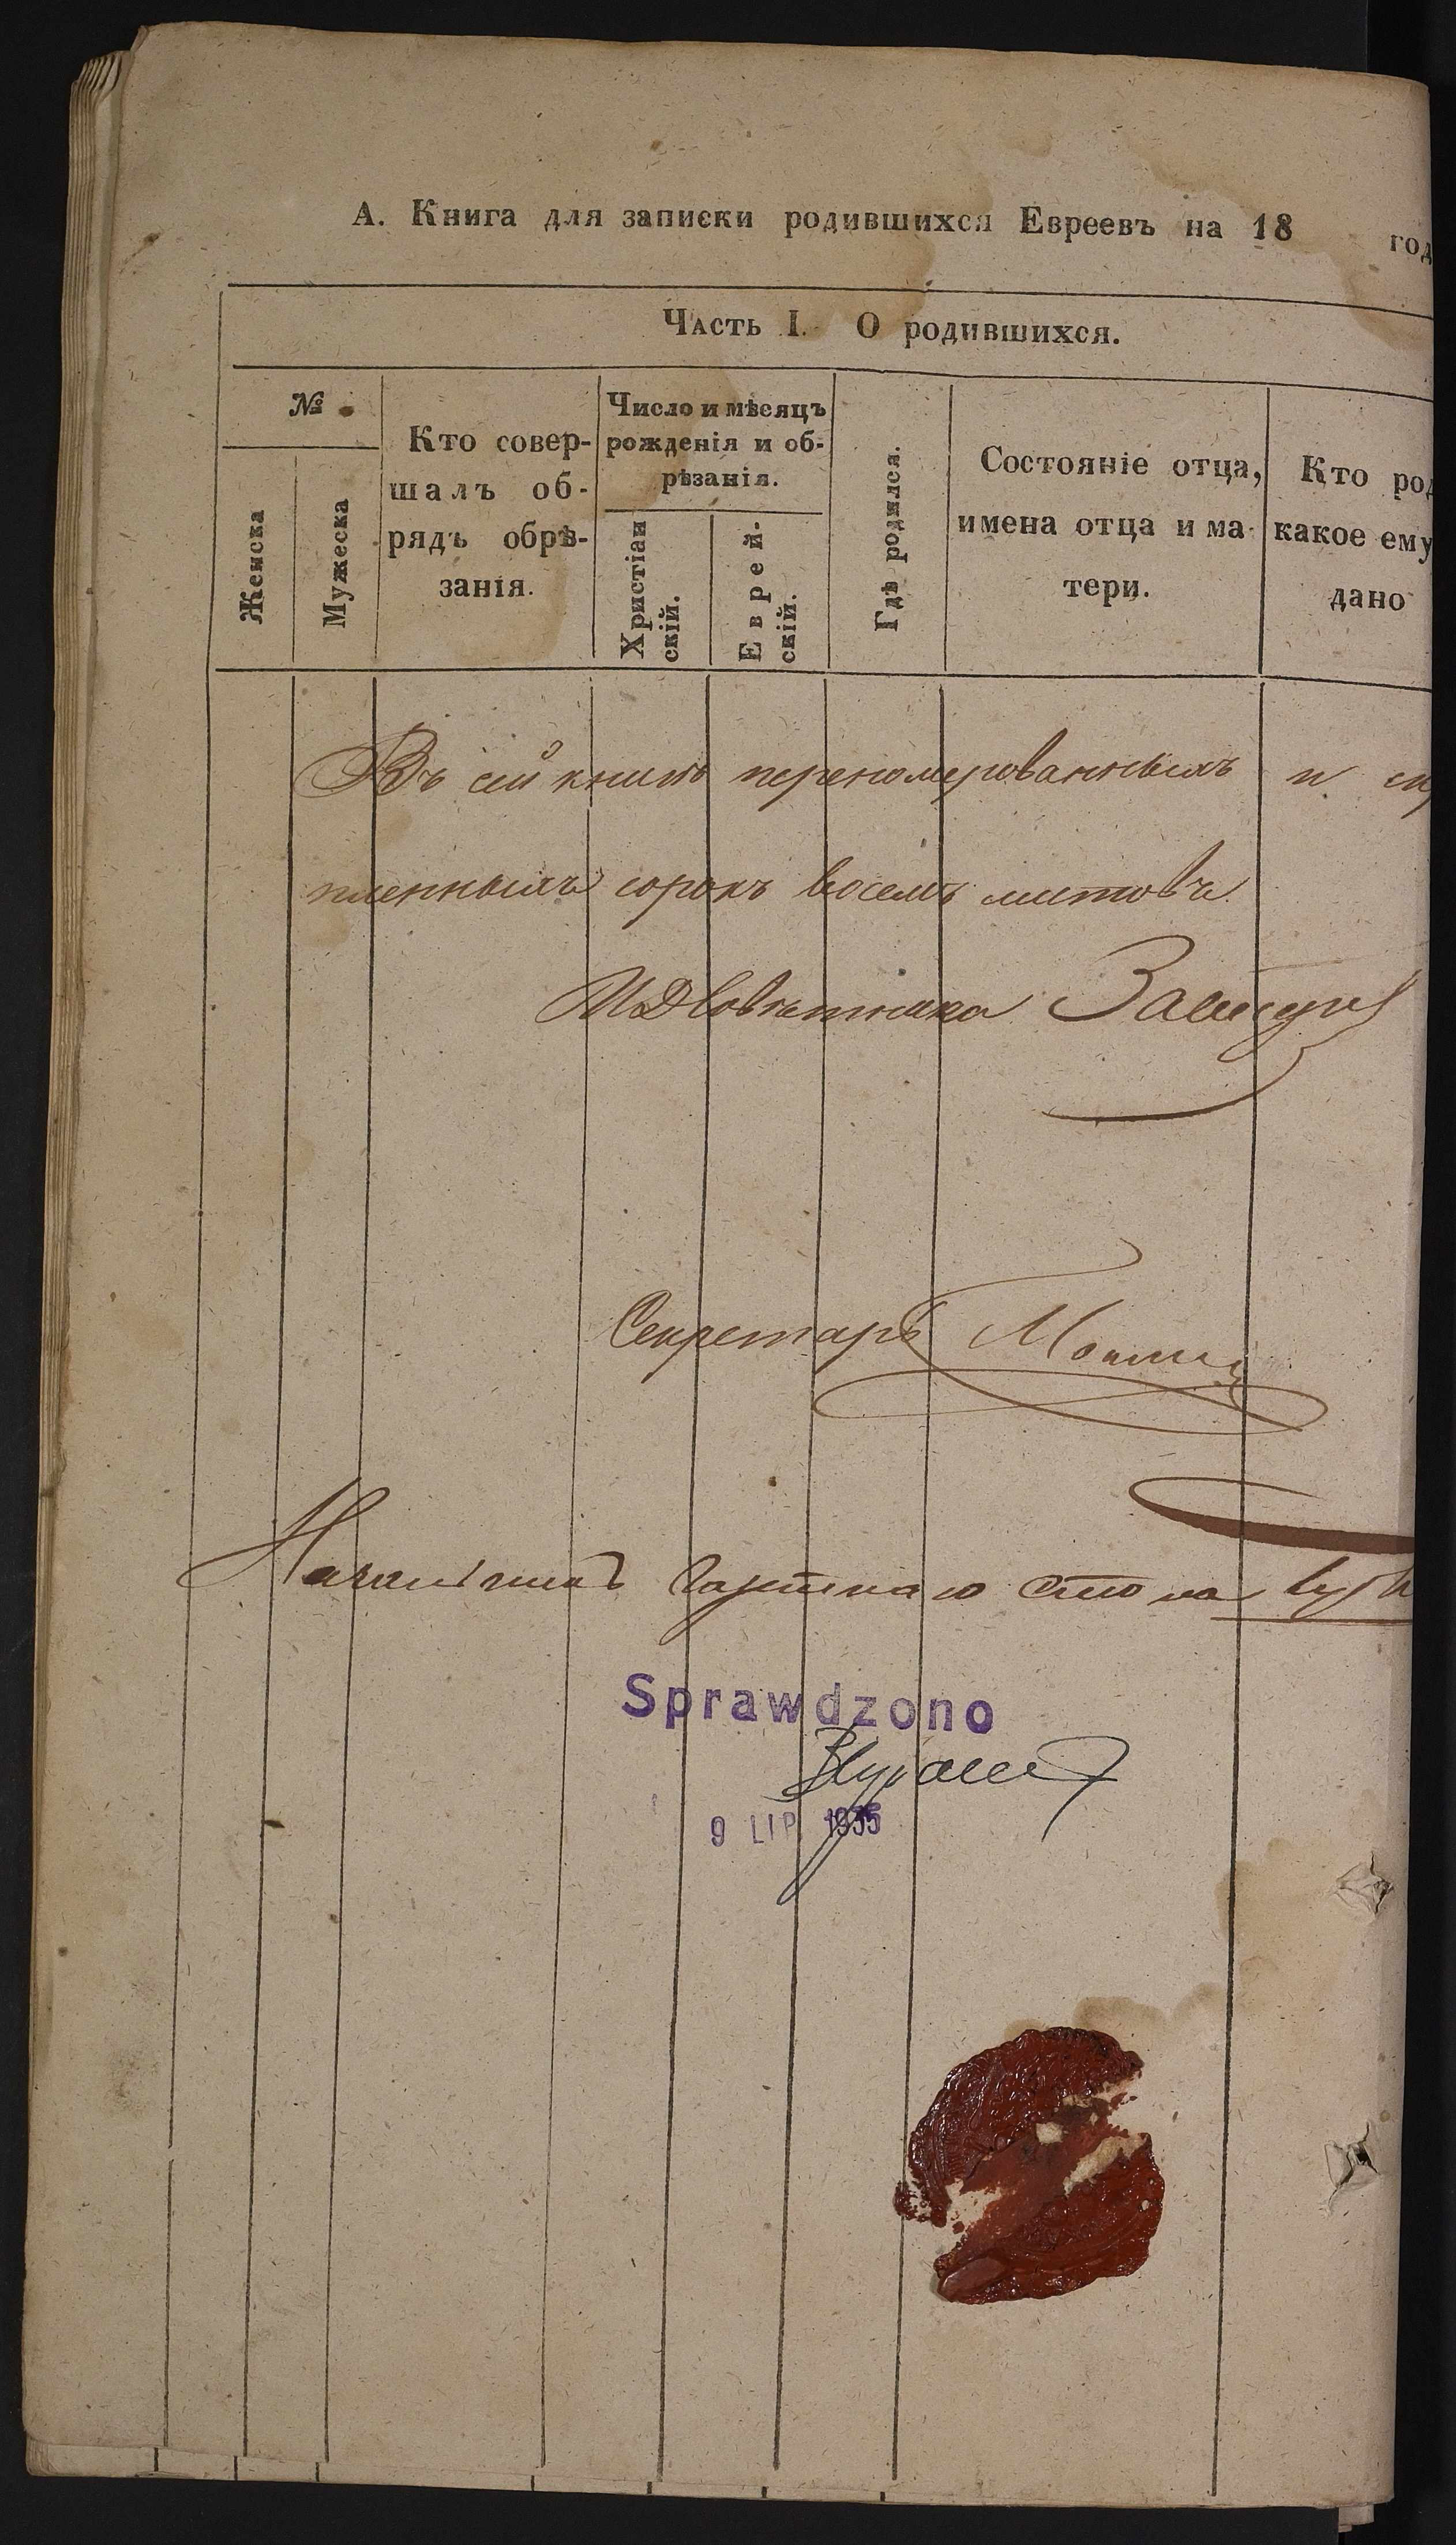 А. Книга для записки родившихся Евреевъ на 18 год
Часть I. О родившихся.
№
Женска
Мужеска
Кто совер-
шалъ об-
рядъ обрѣ-
занія.
Число и мѣсяцъ
рожденія и об-
рѣзанія.
Христіан
скій.
Еврей-
скій.
Гдѣ родился.
Состояніе отца,
имена отца и ма
тери.
Кто род
какое ему
дано
Въ сей книгѣ перенумерованныхъ и
пленныхъ сорокъ восемь листовъ
ИД Совѣтника
Секретарь
Начальникъ стола
Sprawdzono
9 LIP 1935